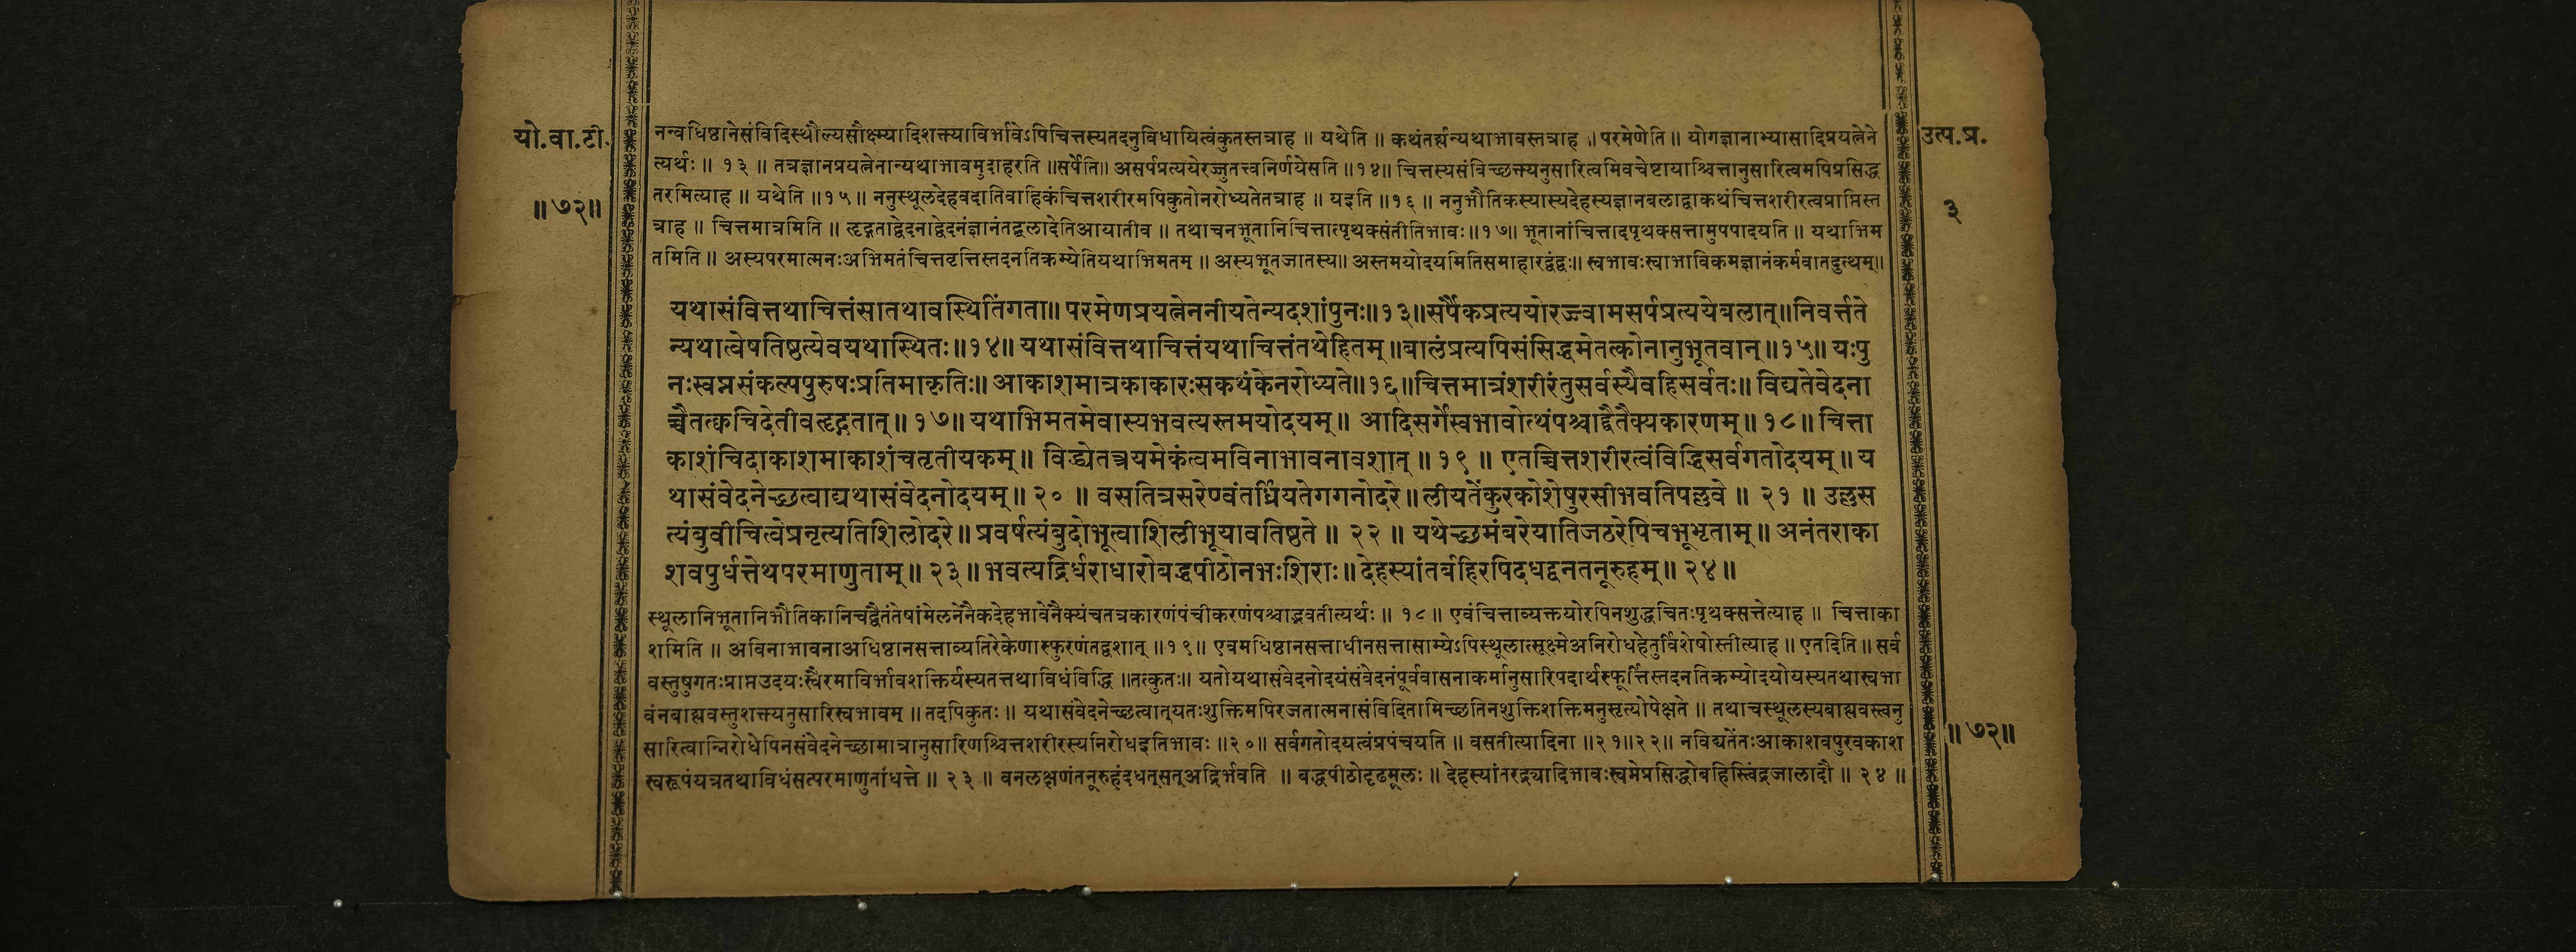 यो.वा.टी.
॥ ७२॥
उत्प.प्र.
३
नन्वधिष्ठानेसंविदिस्थौल्यसौक्ष्म्यादिशक्त्याविर्भावेऽपिचित्तस्यतदनुविधायित्वंकुतस्तत्राह ॥ यथेति ॥ कथंतर्ह्यन्यथाभावस्तत्राह ॥ परमेणेति ॥ योगज्ञानाभ्यासादिप्रयत्नेने
त्यर्थः ॥ १३ ॥ तत्रज्ञानप्रयत्नेनान्यथाभावमुदाहरति ॥सर्पेति॥ असर्पप्रत्ययेरज्जुतत्त्वनिर्णयेसति ॥१४॥ चित्तस्यसंविच्छक्त्यनुसारित्वमिवचेष्टायाश्चित्तानुसारित्वमपिप्रसिद्ध
तरमित्याह ॥ यथेति ॥१५॥ ननुस्थूलदेहवदातिवाहिकंचित्तशरीरमपिकुतोनरोध्यतेतत्राह ॥ यइति ॥१६॥ ननुभौतिकस्यास्यदेहस्यज्ञानबलाद्वाकथंचित्तशरीरत्वप्राप्तिस्त
त्राह ॥ चित्तमात्रमिति ॥ हृद्गताद्वेदनाद्वेदनंज्ञानंतद्बलादेतिआयातीव ॥ तथाचनभूतानिचित्तात्पृथक्संतीतिभावः॥१७॥ भूतानांचित्तादपृथक्सत्तामुपपादयति ॥ यथाभिम
तमिति ॥ अस्यपरमात्मनःअभिमतंचित्तवृत्तिस्तदनतिक्रम्येतियथाभिमतम् ॥ अस्यभूतजातस्य॥ अस्तमयोदयमितिसमाहारद्वंद्वः॥ स्वभावःस्वाभाविकमज्ञानंकर्मवातदुत्थम्॥
यथासंवित्तथाचित्तंसातथावस्थितिंगता॥ परमेणप्रयत्नेननीयतेन्यदशांपुनः॥१३॥सर्पैकप्रत्ययोरज्ज्वामसर्पप्रत्ययेबलात्॥निवर्त्तते
न्यथात्वेषतिष्ठत्येवयथास्थितः॥१४॥ यथासंवित्तथाचित्तंयथाचित्तंतथेहितम्॥बालंप्रत्यपिसंसिद्धमेतत्कोनानुभूतवान्॥१५॥ यःपु
नःस्वप्नसंकल्पपुरुषःप्रतिमाकृतिः॥ आकाशमात्रकाकारःसकथंकेनरोध्यते॥१६॥चित्तमात्रंशरीरंतुसर्वस्यैवहिसर्वतः॥ विद्यतेवेदना
च्चैतत्क्वचिदेतीवहृद्गतात्॥ १७॥ यथाभिमतमेवास्यभवत्यस्तमयोदयम्॥ आदिसर्गेस्वभावोत्थंपश्चाद्द्वैतैक्यकारणम्॥ १८॥ चित्ता
काशंचिदाकाशमाकाशंचतृतीयकम्॥ विद्ध्येतत्त्रयमेकंत्वमविनाभावनावशात् ॥ १९ ॥ एतच्चित्तशरीरत्वंविद्धिसर्वगतोदयम्॥ य
थासंवेदनेच्छत्वाद्यथासंवेदनोदयम्॥ २० ॥ वसतित्रसरेण्वंतर्ध्रियतेगगनोदरे॥ लीयतेंकुरकोशेषुरसीभवतिपल्लवे ॥ २१ ॥ उल्लस
त्यंबुवीचित्वेप्रनृत्यतिशिलोदरे॥ प्रवर्षत्यंबुदोभूत्वाशिलीभूयावतिष्ठते ॥ २२ ॥ यथेच्छमंबरेयातिजठरेपिचभूभृताम्॥ अनंतराका
शवपुर्धत्तेथपरमाणुताम्॥ २३॥ भवत्यद्रिर्धराधारोबद्धपीठोनभःशिराः॥ देहस्यांतर्बहिरपिदधद्वनतनूरुहम्॥ २४॥
स्थूलानिभूतानिभौतिकानिचद्वैतंतेषांमेलनेनैकदेहभावेनैक्यंचतत्रकारणंपंचीकरणंपश्चाद्भवतीत्यर्थः ॥ १८॥ एवंचित्ताव्यक्तयोरपिनशुद्धचितःपृथक्सत्तेत्याह ॥ चित्ताका
शमिति ॥ अविनाभावनाअधिष्ठानसत्ताव्यतिरेकेणास्फुरणंतद्वशात् ॥१९॥ एवमधिष्ठानसत्ताधीनसत्तासाम्येऽपिस्थूलात्सूक्ष्मेअनिरोधहेतुर्विशेषोस्तीत्याह ॥ एतदिति ॥ सर्व
वस्तुषुगतःप्राप्तउदयःस्वैरमाविर्भावशक्तिर्यस्यतत्तथाविधंविद्धि ॥तत्कुतः॥ यतोयथासंवेदनोदयंसंवेदनंपूर्ववासनाकर्मानुसारिपदार्थस्फूर्त्तिस्तदनतिक्रम्योदयोयस्यतथास्वभा
वंनबाह्यवस्तुशक्त्यनुसारिस्वभावम् ॥ तदपिकुतः ॥ यथासंवेदनेच्छत्वात्यतःशुक्तिमपिरजतात्मनासंविदितामिच्छतिनशुक्तिशक्तिमनुसृत्योपेक्षते ॥ तथाचस्थूलस्यबाह्यवस्त्वनु
सारित्वान्निरोधेपिनसंवेदनेच्छामात्रानुसारिणश्चित्तशरीरस्यनिरोधइतिभावः ॥२०॥ सर्वगतोदयत्वंप्रपंचयति ॥ वसतीत्यादिना ॥२१॥२२॥ नविद्यतेंतःआकाशवपुरवकाश
स्वरूपंयत्रतथाविधंसत्परमाणुतांधत्ते ॥ २३ ॥ वनलक्षणंतनूरुहंदधत्सत्अद्रिर्भवति ॥ बद्धपीठोदृढमूलः ॥ देहस्यांतरद्र्यादिभावःस्वप्नेप्रसिद्धोबहिस्त्विंद्रजालादौ ॥ २४ ॥
॥ ७२॥